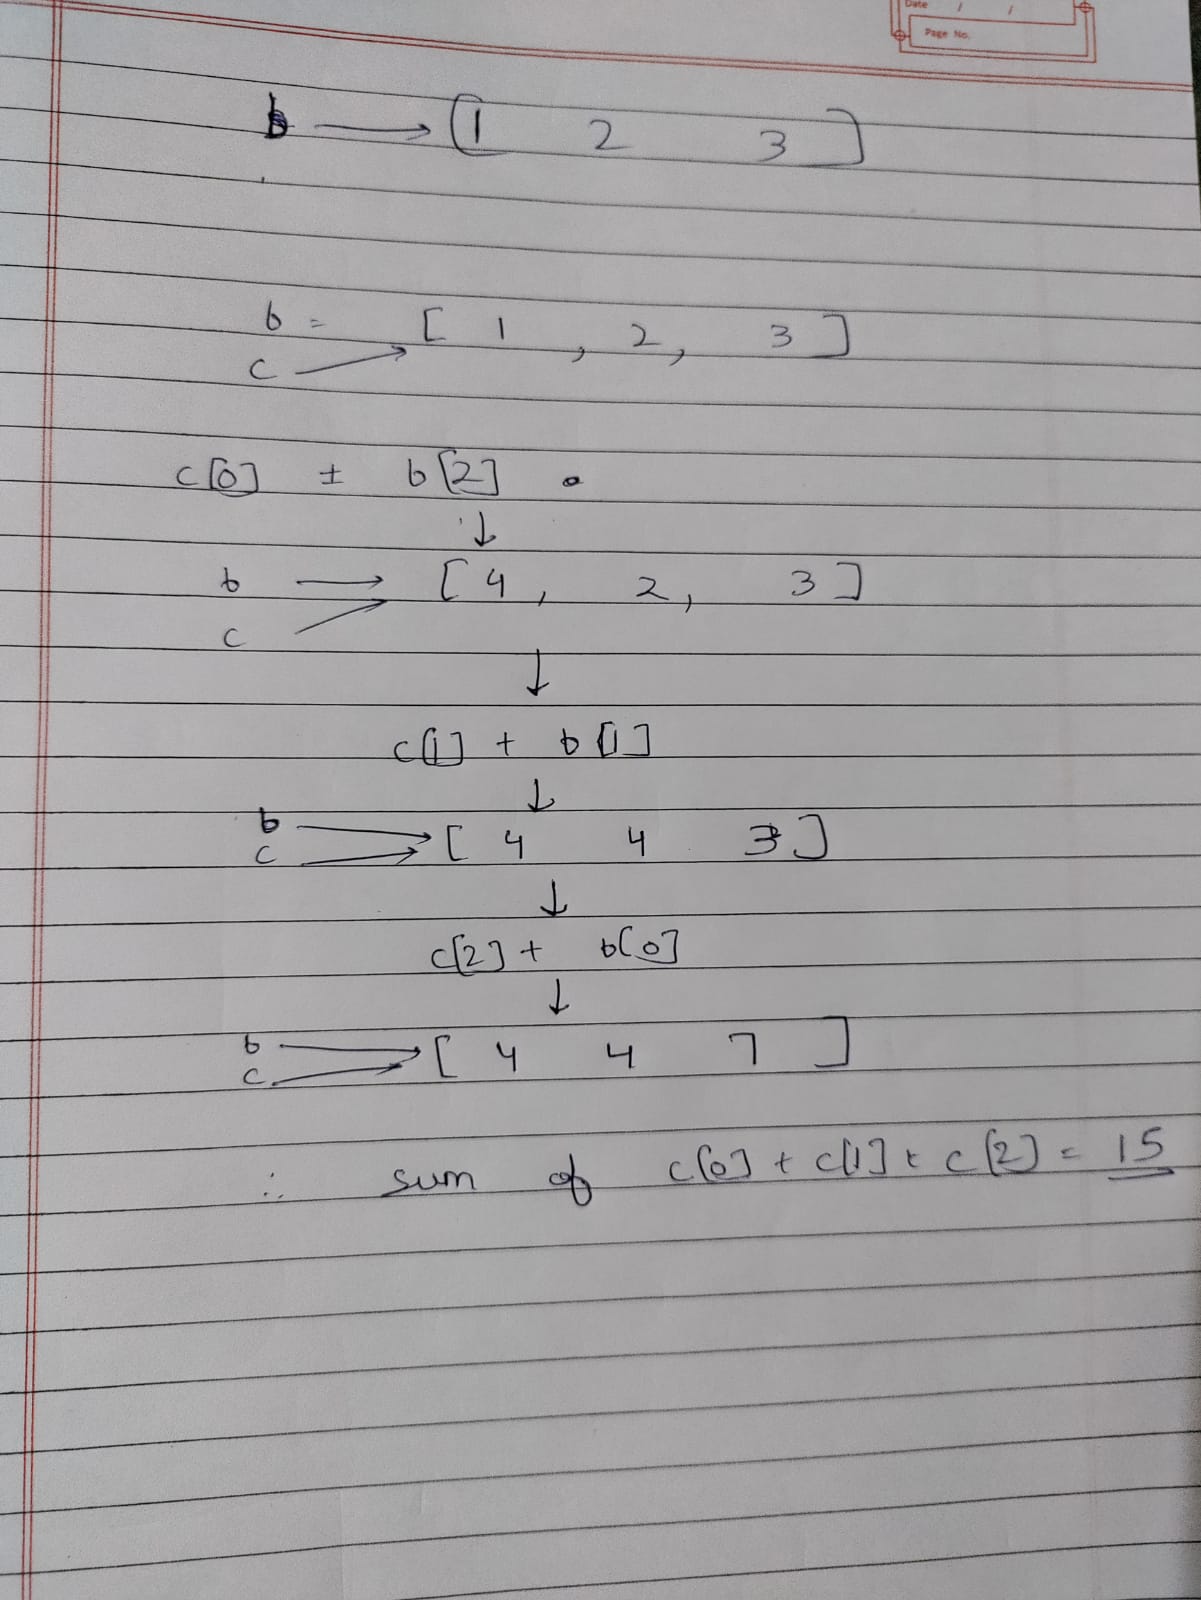 Date / /
Page No.
b → [1 2 3]
b = [ 1 , 2, 3 ]
c →
c[0] ± b[2] .
↓
b → [ 4, 2, 3 ]
c →
↓
c[1] + b[1]
↓
b → [ 4 4 3 ]
c →
↓
c[2] + b[0]
↓
b → [ 4 4 7 ]
c →
∴ sum of c[0] + c[1] + c[2] = 15